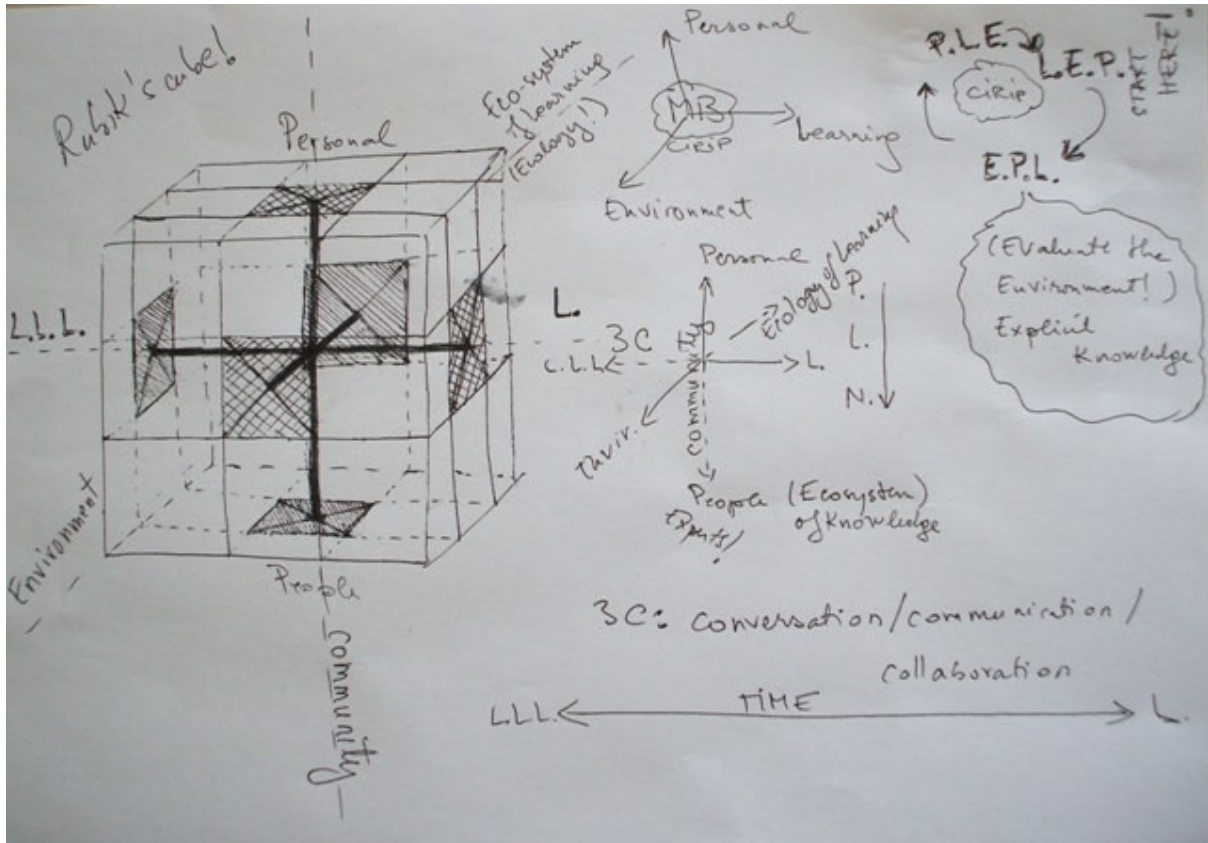 Rubik's cube!
Personal
Eco-system
of Learning
(Ecology!)
L.L.L.
L.
Environment
People
community
Personal
MB
CIRIP
Learning
Environment
P.L.E.
L.E.P.
START
HERE!
CIRIP
E.P.L.
(Evaluate the
Environment!)
Explicit
Knowledge
Personal
Ecology of Learning
3C
L.L.L.
L.
Envir.
community
People (Ecosystem)
of Knowledge
P.
L.
N.
3C: conversation/communication/
collaboration
TIME
L.L.L.
L.